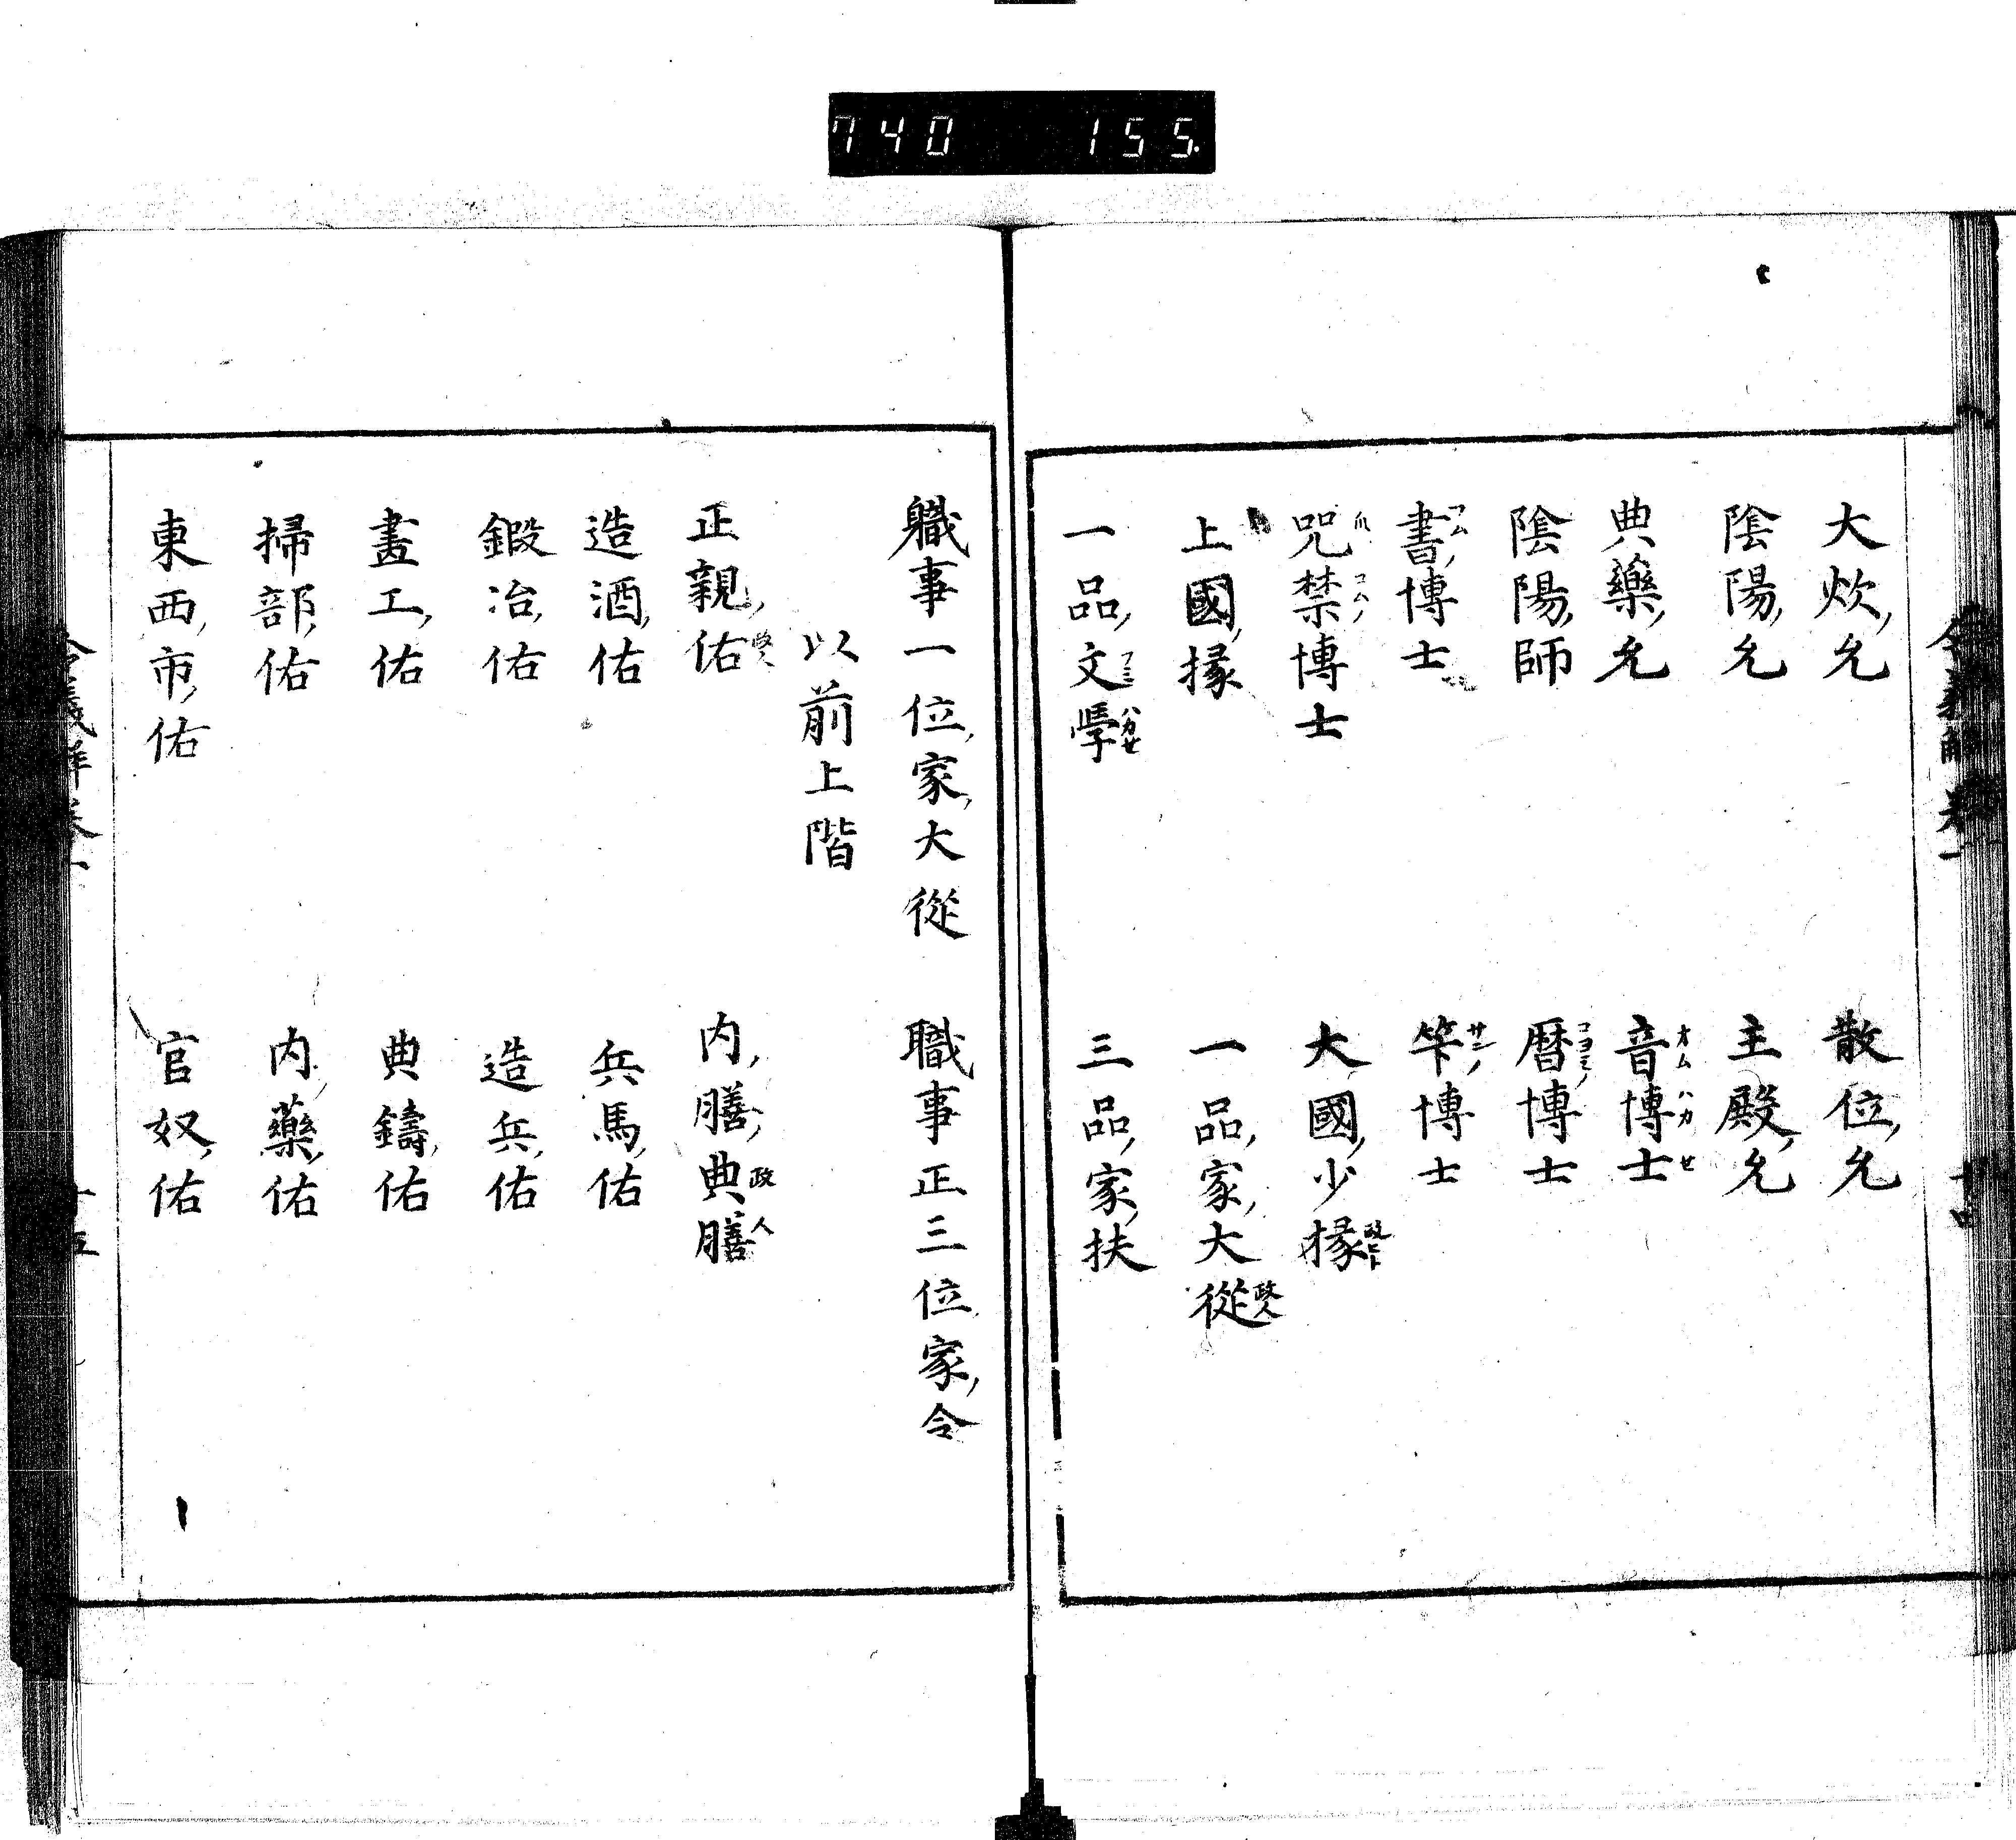 740 155
大炊允　散位允
陰陽允　主殿允
典藥允　音博士
陰陽師　暦博士
書博士　笇博士
咒禁博士　大國少掾
上國掾　一品家大從
一品文學　三品家扶
職事一位家大從　職事正三位家令
以前上階
正親佑　内膳典膳
造酒佑　兵馬佑
鍛冶佑　造兵佑
畫工佑　典鑄佑
掃部佑　内藥佑
東西市佑　官奴佑